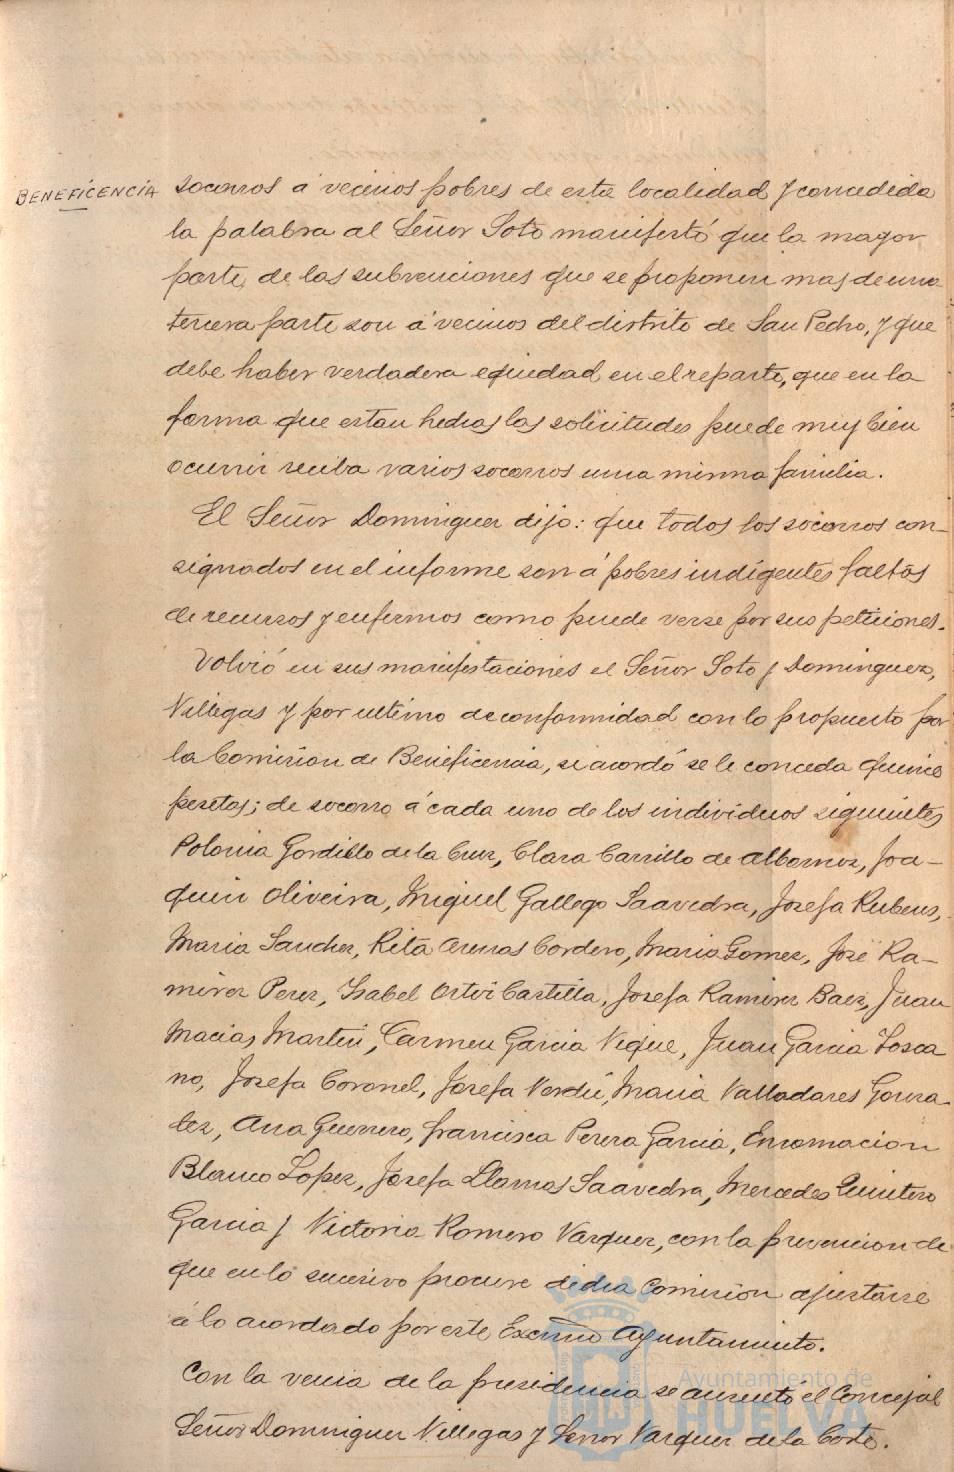 BENEFICENCIA
socorros á vecinos pobres de esta localidad y concedida
la palabra al Señor Soto manifestó que la mayor
parte, de las subvenciones que se proponen mas de una
tercera parte son á vecinos del distrito de San Pedro, y que
debe haber verdadera equidad en el reparto, que en la
forma que estan hechas las solicitudes puede muy bien
ocurrir reciba varios socorros una misma familia.
El Señor Dominguez dijo: que todos los socorros con-
signados en el informe son á pobres indigentes faltos
de recursos y enfermos como puede verse por sus peticiones.
Volvió en sus manifestaciones el Señor Soto y Dominguez,
Villegas y por ultimo de conformidad con lo propuesto por
la Comision de Beneficencia, se acordó se le conceda quince
pesetas; de socorro á cada uno de los individuos siguientes
Polonia Gordillo de la Cruz, Clara Carrillo de Albornoz, Joa-
quin Oliveira, Miguel Gallego Saavedra, Josefa Rubens,
Maria Sanchez, Rita Arenas Cordero, Maria Gomez, José Ra-
mirez Perez, Isabel Ortvi Castilla, Josefa Ramirez Baez, Juan
Macias Martin, Carmen Garcia Vique, Juan Garcia Tosca
no, Josefa Coronel, Josefa Verdú, Maria Valladares Gonza-
lez, Ana Guerrero, Francisca Perera Garcia, Encarnacion
Blanco Lopez, Josefa Llamas Saavedra, Mercedes Quintero
Garcia y Victoria Romero Vazquez, con la prevencion de
que en lo sucesivo procure dicha Comision ajustarse
á lo acordado por este Excmo Ayuntamiento.
Con la venia de la presidencia se ausentó el Concejal
Señor Dominguez Villegas y Señor Vazquez de la Corte.
Ayuntamiento de
HUELVA